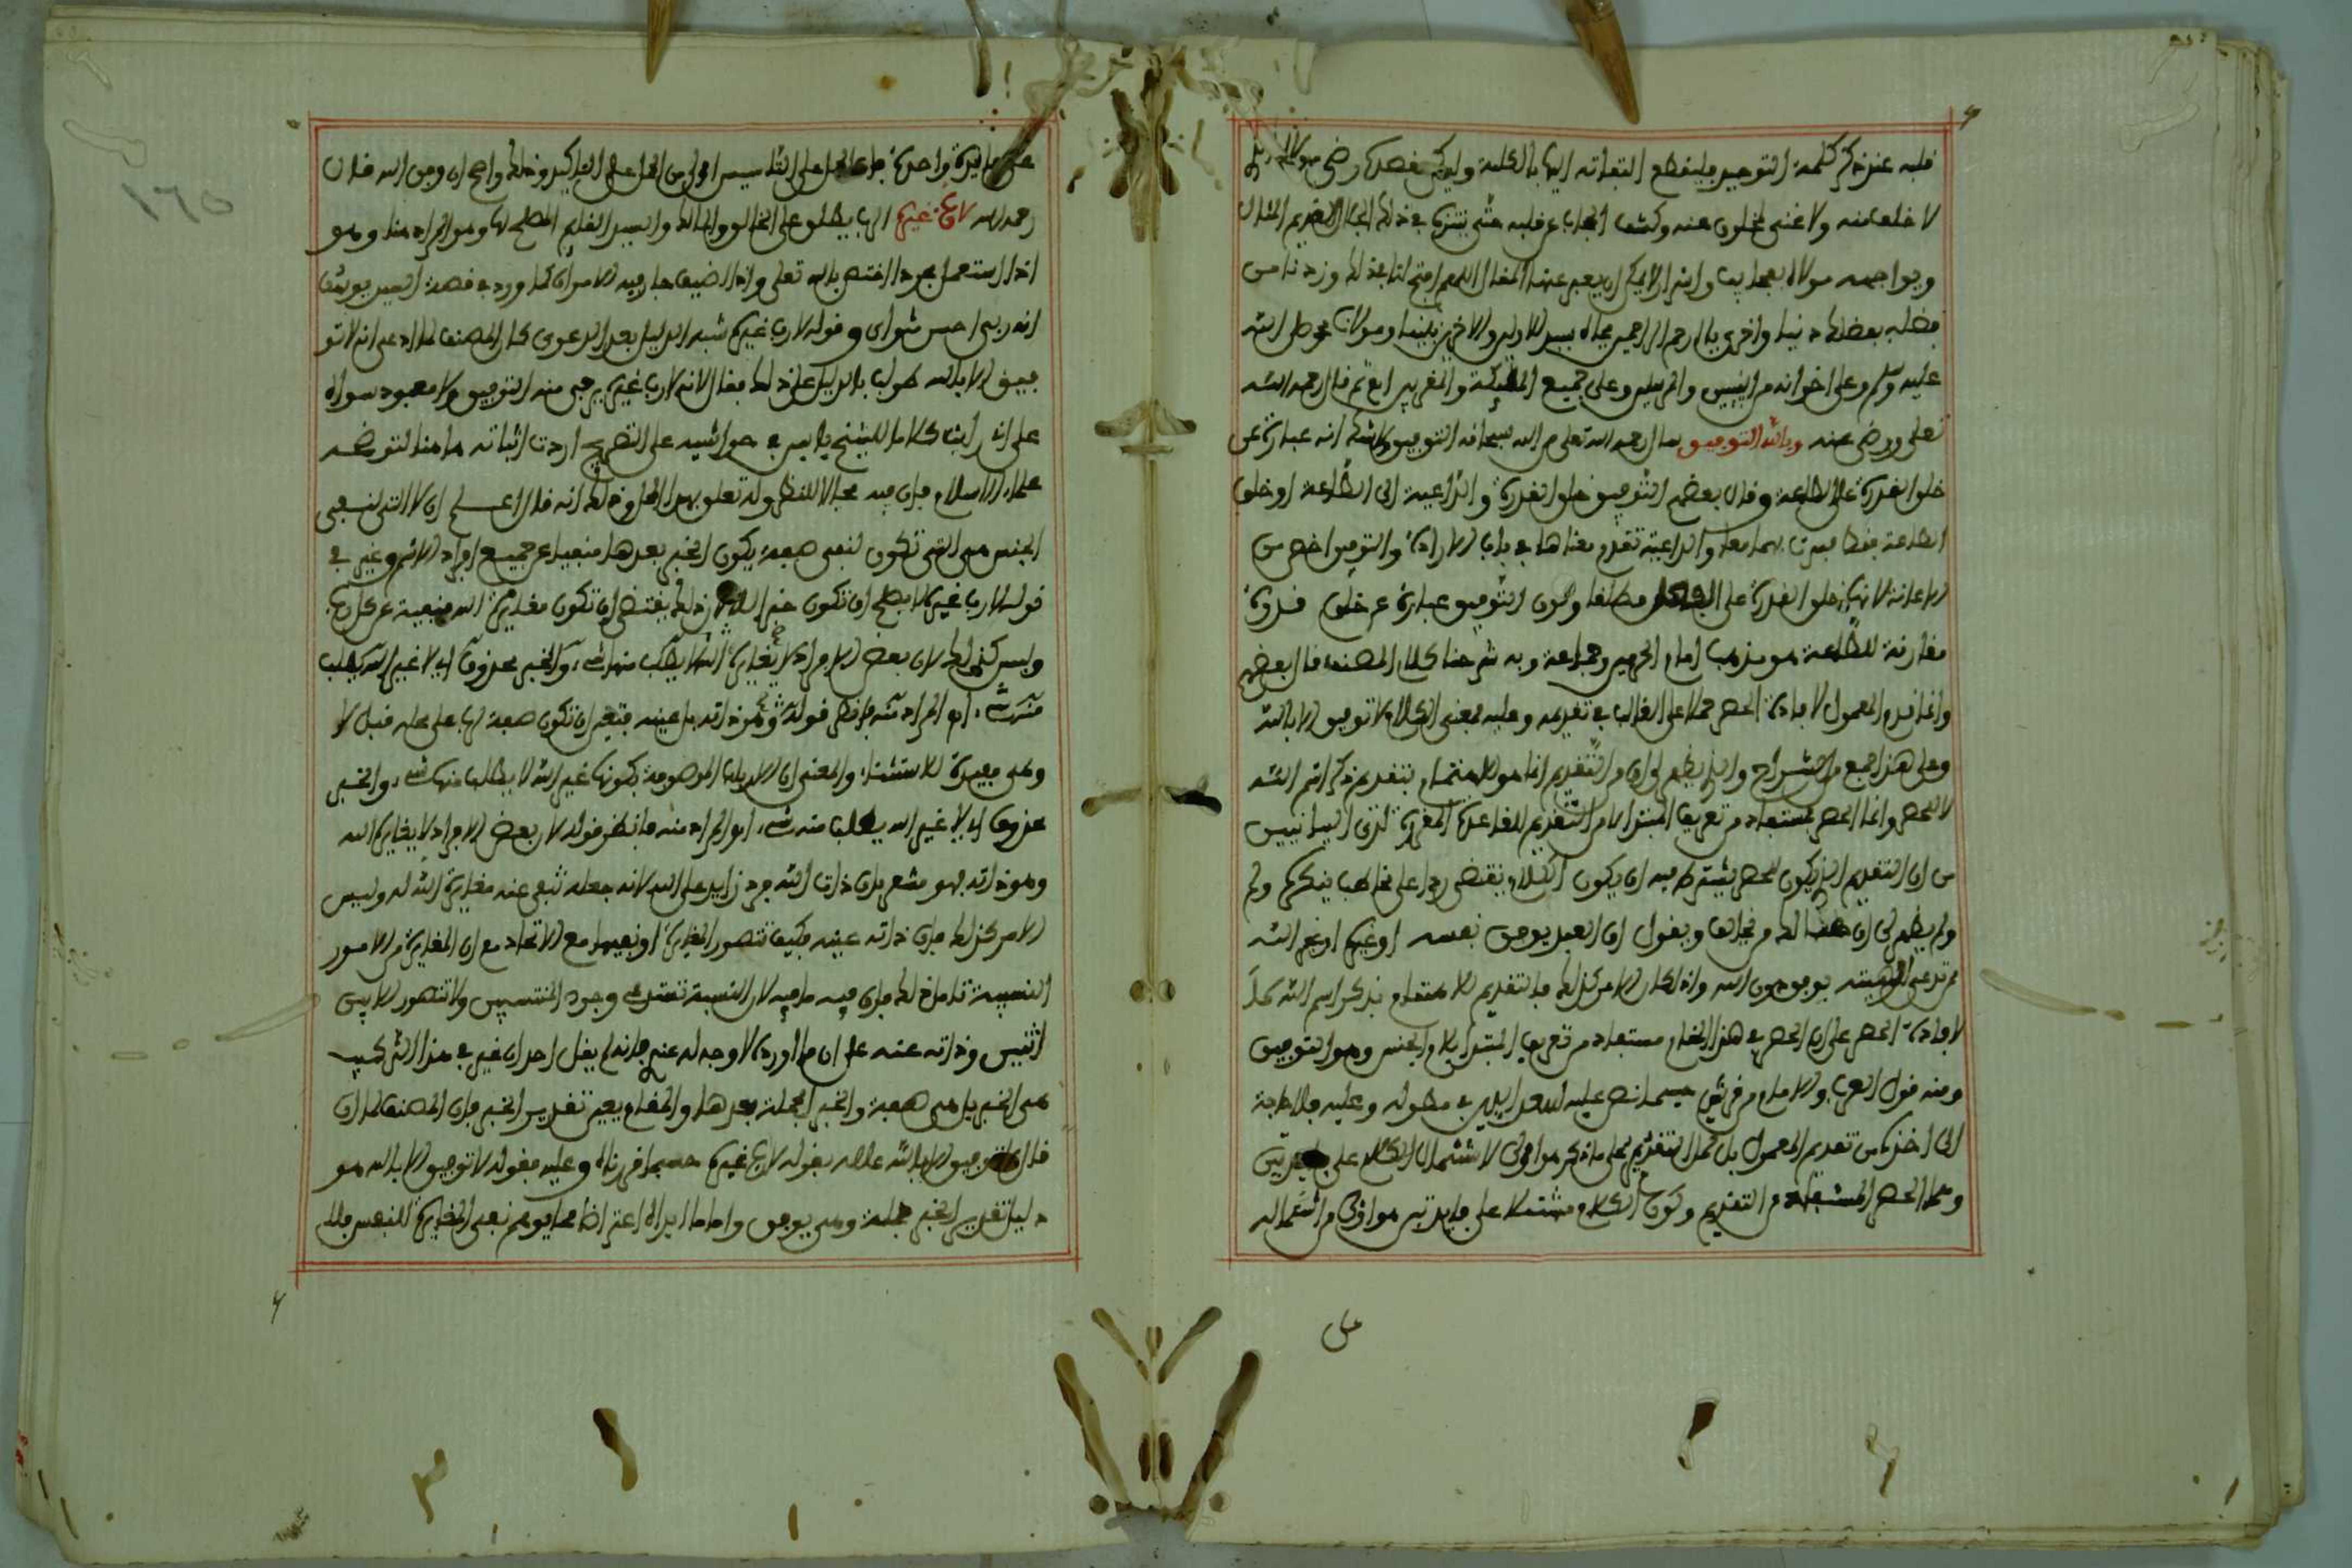 قلبه عند ذكر كلمة التوحيد فلينقطع التفاته اليها بالكلية وليكن قصدك رضى مولاك
لا خلف منه ولا غنى لمخلوق عنه وكشف الحجاب عن قلبه حتى يتنزه في ذلك الجمال العديم المثال
ويواجهه مولاه بعجايب واسرار لا يمكن ان يعبر عنها المقال اللهم افتح لنا بذلك وزدنا من
فضله بفضلك دنيا واخرى يا ارحم الراحمين بجاه سيد الاولين والاخرين نبينا ومولانا محمد صلى الله
عليه وسلم وعلى اخوانه من النبيين والمرسلين وعلى جميع الملائكة والمقربين ثم قال رحمه الله
تعلى ورضي عنه وبالله التوفيق قال رحمه الله تعلى من الله سبحانه التوفيق انه عبارة عن
خلق القدرة على الطاعة وقال بعضهم التوفيق خلق القدرة والداعية الى الطاعة او خلق
الطاعة بهما معا والداعية تقدم معناها في باب الارادة والتوفيق اخص من
الاعانة لانها خلق القدرة على الفعل مطلقا وكون التوفيق عبارة عن خلق قدرة
مقارنة للطاعة هو مذهب امام الحرمين وجماعة وبه شرحنا كلام المصنف قال بعضهم
وانما قدم المعمول لافادة الحصر حملا على الغالب في تقديمه وعليه فمعنى الكلام لا توفيق الا بالله
وعلى هذا جمع من الشراح والذي يظهر لي ان التقديم انما هو للاهتمام بتقديم ذكر اسم الله
لا للحصر وانما الحصر مستفاد من تعريف المبتدا لا من التقديم للقاعدة المقررة لدى البيانيين
من ان التقديم الذي يكون للحصر يشترط فيه ان يكون الكلام يقتضي ردا على مخاطب ينكره ولم
ولم يظهر لي ان هنالك من يخالف ويقول ان العبد يوفق نفسه او غيره او غير الله
ممن تدعى الهيته يوفق دون الله واذا كان الامر كذلك فالتقديم للاهتمام بذكر اسم الله تعلى
لافادة الحصر على ان الحصر في هذا المقام مستفاد من تعريف المبتدا بلام الجنس وهو التوفيق
ومنه قول العرب والامام من قريش حسبما نص عليه السعد الدين في مطوله وعليه فلا حاجة
الى اخذه من تقديم المعمول بل حمل التقديم على ما ذكر هو اولى لاشتمال الكلام على فايدتين
وحمل الحصر المستفاد من التقديم وكون الكلام مشتملا على فايدتين هو اولى من اشتماله
على
على فايدة واحدة فان الحمل على التاسيس اولى من الحمل على التاكيد وذلك واضح ان وفق الله قال
رحمه الله لا رب غيره الرب يطلق على الخالق والمالك والسيد القايم المصلح لها وهو المراد هنا وهو
اذا استعمل مجردا اختص بالله تعلى واذا اضيف جاز فيه الامران كما ورد في قصة السيد يوسف
انه ربي احسن مثواي وقوله لا رب غيره شبه الدليل بعد الدعوى كان المصنف لما ادعى ان لا تو
فيق الا بالله طولب بالدليل على ذلك فقال لانه لا رب غيره يرجى منه التوفيق ولا معبود سواه
على اني رايت كلاما للشيخ ياسين في حواشيه على التصريح اردت اثباته ها هنا لتوضحه
علماء الاسلام فان فيه مجالا للنظر وله تعلق بهذا المحل وذلك انه قال اعلم ان لا التي لنفي
الجنس هي التي تكون لنفي صفة يكون الخبر بعدها منفيا عن جميع افراد الاسم وغيره في
قوله لا رب غيره لا يصلح ان تكون خبرا لان ذلك يقتضي ان تكون مغايرة الله منفية عن كل رب
وليس كذلك لان بعض الافراد لا يغاير الله يطلب منها شيء والخبر محذوف اي لا غير الله يطلب
منه شيء ام المراد منه فانظر قوله وهو ذاته بل عينه فتعين ان تكون صفة لها على محله قبل لا
وهي مفيدة للاستثناء والمعنى ان الارباب الموصوفة بكونها غير الله لا يطلب منها شيء والخبر
محذوف اي لا غير الله يطلب منه شيء اهو المراد منه فانظر قوله لان بعض الافراد لا يغاير الله
وهو ذاته فهو مشعر بان ذات الله فرد زايد على الله لانه جعله تنفى عنه مغايرة الله له وليس
الامر كذلك فان ذاته عينه فكيف تتصور المغايرة او نفيها مع الاتحاد مع ان المغايرة من الامور
النسبية تامل ذلك فان فيه ما فيه لان النسبة تستدعي وجود المنتسبين ولا تتصور الا بين
اثنين وذاته عينه على ان ما اورده لا وجه له عندي فانه لم يقل احد ان غير في هذا التركيب
هي الخبر بل هي صفة والخبر الجملة بعدها والمقام يعين تقدير الخبر فان المصنف لما ان
قال لا توفيق الا بالله علله بقوله لا رب غيره حسبما قررناه وعليه فقوله لا توفيق الا بالله هو
دليل تقدير الخبر جملة وهي يوفق واما ايراده اعتراضا مما يوهم نفي المغايرة للنفس فلا